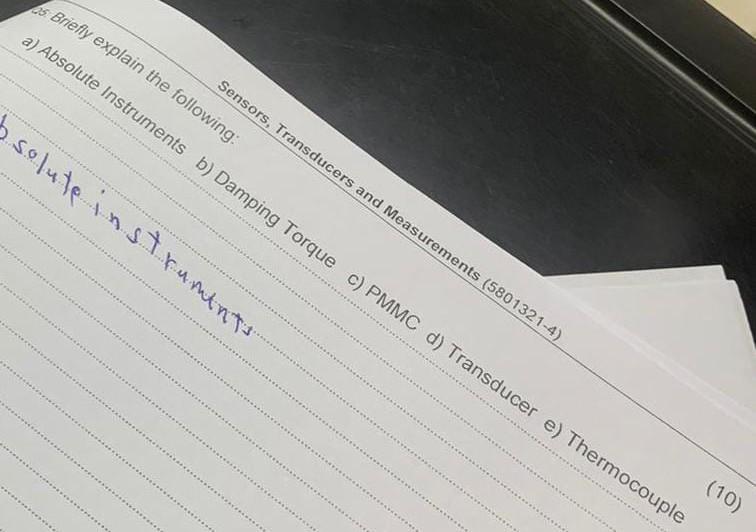 Sensors, Transducers and Measurements (5801321-4)
Q5: Briefly explain the following: (10)
a) Absolute Instruments b) Damping Torque c) PMMC d) Transducer e) Thermocouple
bsolute instruments